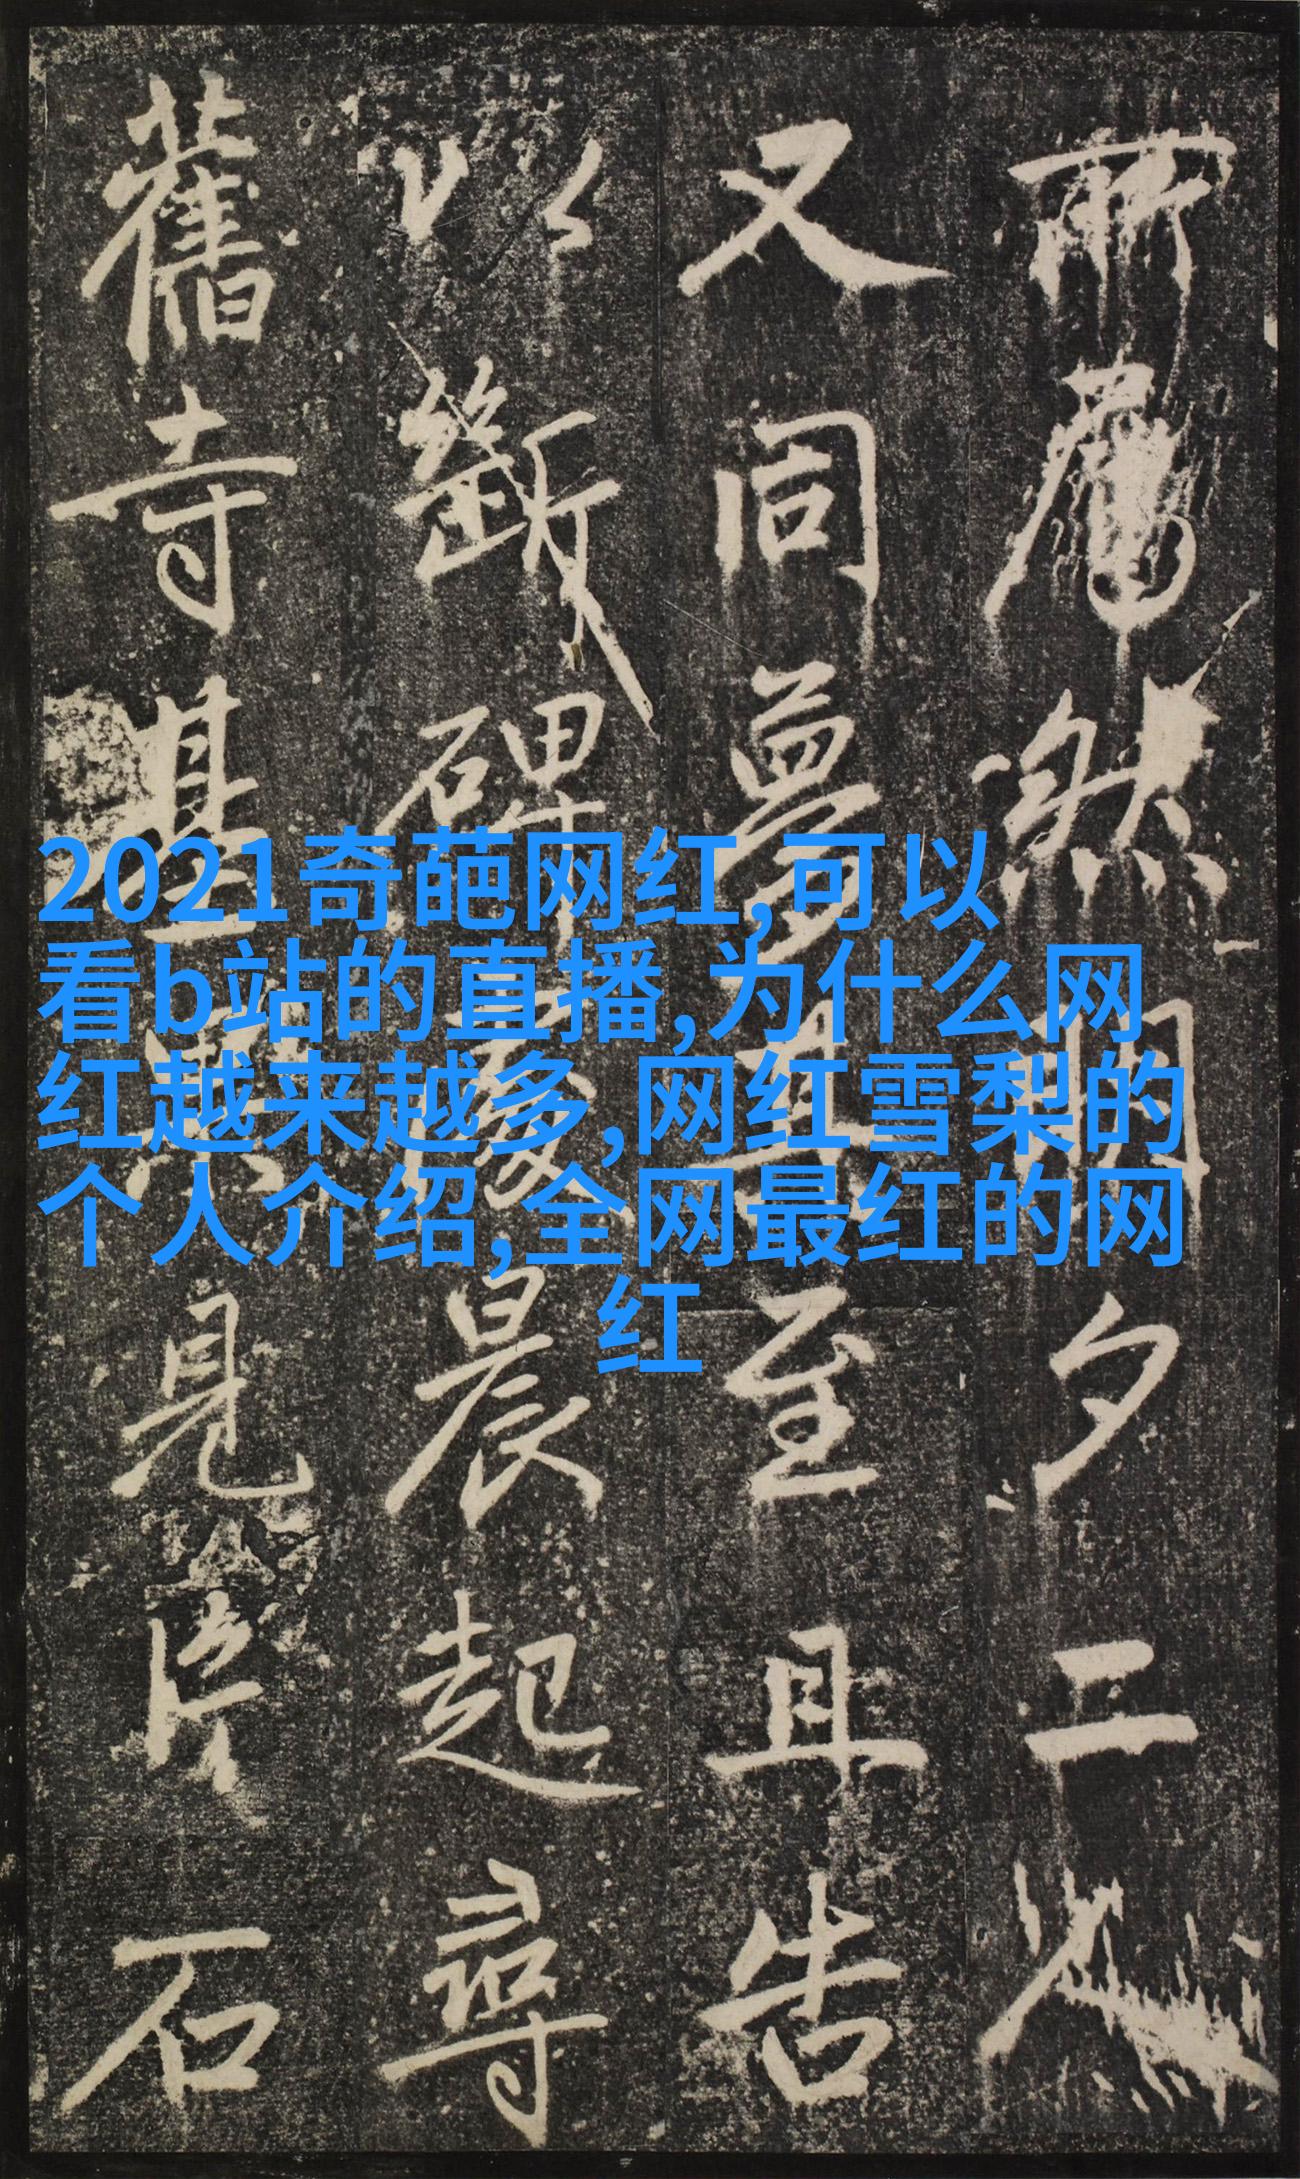 然明夕二
又同夢其至且告
以斷碑處晨起尋
舊寺基果見片石
2021奇葩网红,可以
看b站的直播,为什么网
红越来越多,网红雪梨的
个人介绍,全网最红的网
红